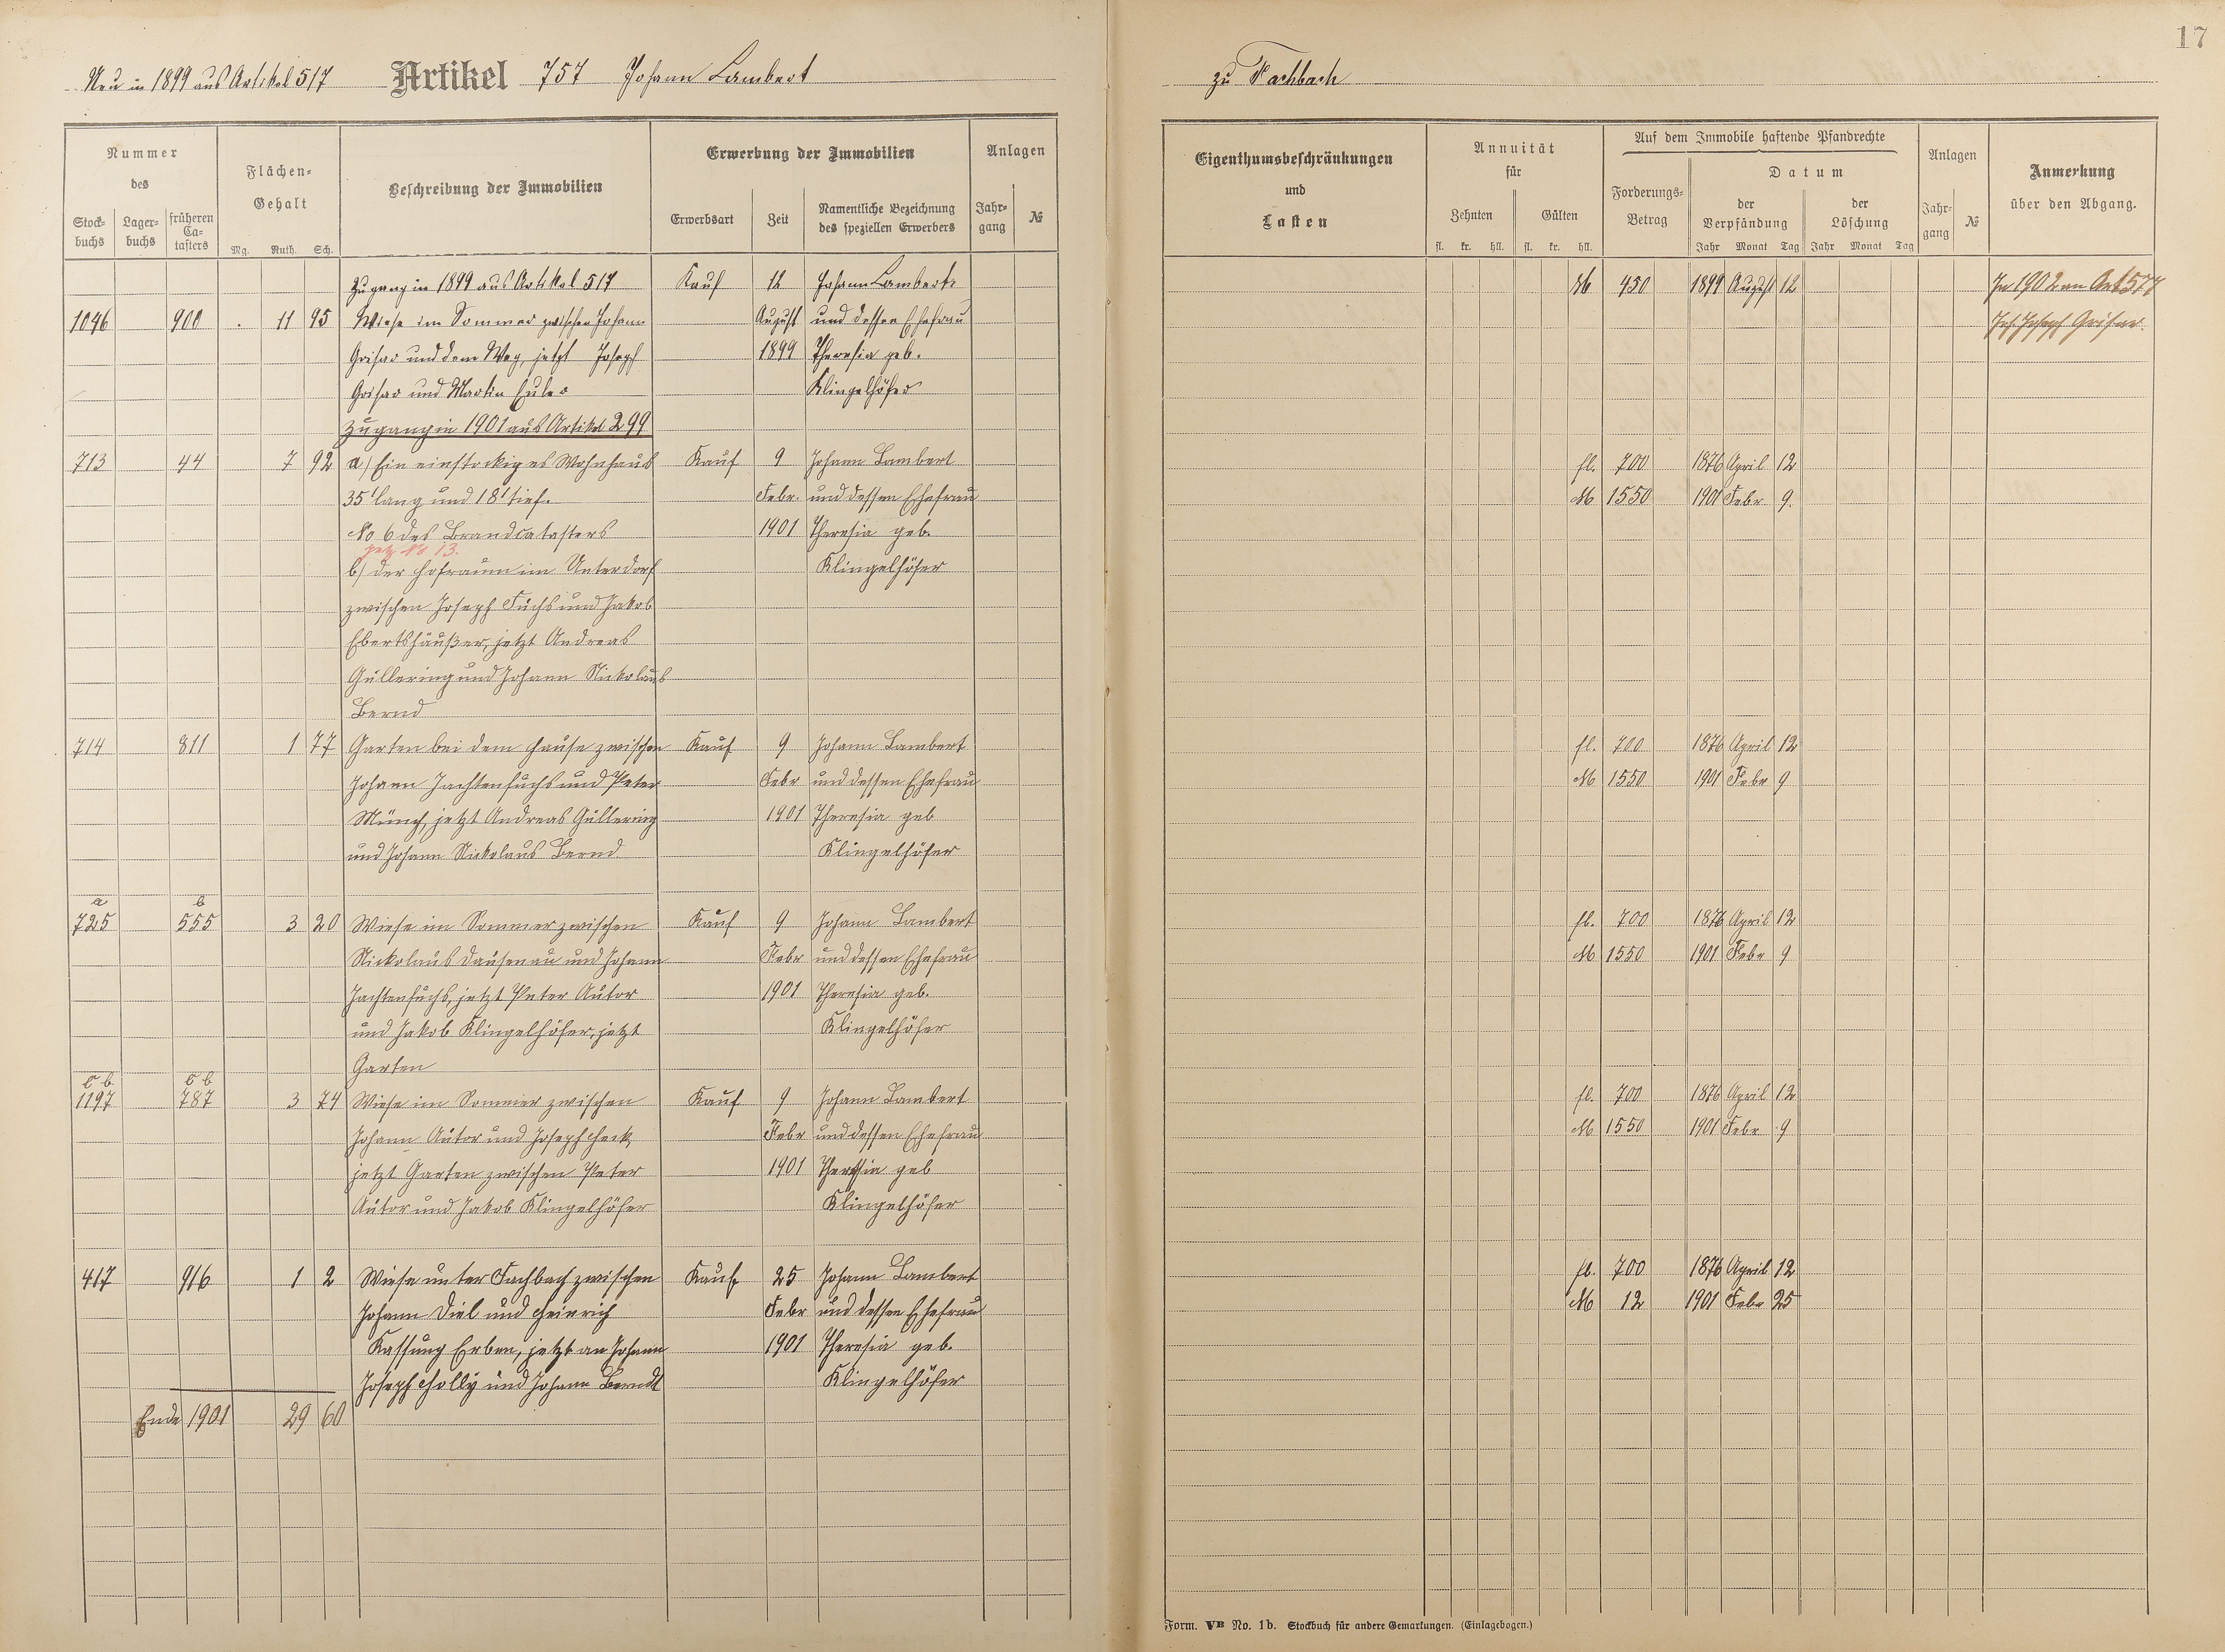 17
Neu in 1899 aus Artikel 517 Artikel 757 Johann Lambert
zu Fachbach
Nummer
des
Stock-
buchs
Lager-
buchs
früheren
Ca-
tasters
Flächen-
Gehalt
Mg. Ruth. Sch.
Beschreibung der Immobilien
Erwerbung der Immobilien
Erwerbsart
Zeit
Namentliche Bezeichnung
des speziellen Erwerbers
Anlagen
Jahr-
gang
№
Eigenthumsbeschränkungen
und
Lasten
Annuität
für
Zehnten
fl. kr. hll.
Gülten
fl. kr. hll.
Auf dem Immobile haftende Pfandrechte
Forderungs-
Betrag
Datum
der
Verpfändung
Jahr Monat Tag
der
Löschung
Jahr Monat Tag
Anlagen
Jahr-
gang
№
Anmerkung
über den Abgang.
Zugang in 1899 aus Artikel 517 Kauf 12 Johann Lambert M 450 1899 August 12 In 1902 an Art 577
1096 900 11 95 Wiese im Sommer zwischen Johann August und dessen Ehefrau Joh. Joseph Grisar
Grisar und dem Weg, jetzt Joseph 1899 Theresia geb.
Grisar und Martin Euler Klingelhöfer
Zugang in 1901 aus Artikel 299
713 44 7 92 a) Ein einstockiges Wohnhaus Kauf 9 Johann Lambert fl. 700 1876 April 12
35' lang und 18' tief. Febr. und dessen Ehefrau M 1550 1901 Febr 9.
No 6 des Brandcatasters 1901 Theresia geb.
jetz No 13.
b) der Hofraum im Unterdorf Klingelhöfer
zwischen Joseph Fuchs und Jakob
Ebertshäußer, jetzt Andreas
Güllering und Johann Nickolaus
Bernd
714 811 1 77 Garten bei dem Hause zwischen Kauf 9 Johann Lambert fl. 700 1876 April 12
Johann Jachtenfuchs und Peter Febr und dessen Ehefrau M 1550 1901 Febr 9
Münch, jetzt Andreas Güllering 1901 Theresia geb
und Johann Nickolaus Bernd Klingelhöfer
a b
725 555 3 20 Wiese im Sommer zwischen Kauf 9 Johann Lambert fl. 700 1876 April 12
Nickolaus Dausenau und Johann Febr und dessen Ehefrau M 1550 1901 Febr 9
Jachtenfuchs, jetzt Peter Autor 1901 Theresia geb.
und Jakob Klingelhöfer, jetzt Klingelhöfer
Garten
1197 787 3 74 Wiese im Sommer zwischen Kauf 9 Johann Lambert fl. 700 1876 April 12
Johann Autor und Joseph Heck, Febr und dessen Ehefrau M 1550 1901 Febr 9
jetzt Garten zwischen Peter 1901 Theresia geb
Autor und Jakob Klingelhöfer Klingelhöfer
417 916 1 2 Wiese unter Fachbach zwischen Kauf 25 Johann Lambert fl. 700 1876 April 12
Johann Diel und Heinrich Febr und dessen Ehefrau M 12 1901 Febr 25
Kassung Erben, jetzt an Johann 1901 Theresia geb.
Joseph Holly und Johann Berndt Klingelhöfer
Ende 1901 29 60
Form. VB No. 1b. Stockbuch für andere Gemarkungen. (Einlagebogen.)